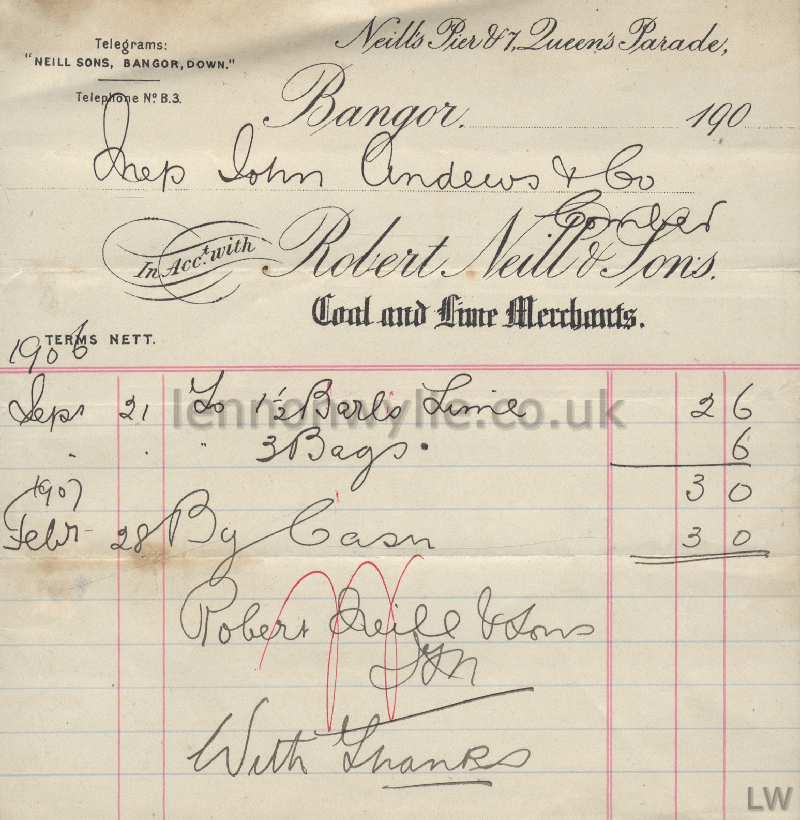 Telegrams:
"NEILL SONS, BANGOR, DOWN."
Telephone No. B.3.
Neill's Pier & 7, Queen's Parade,
Bangor. 190
John Andews & Co
Comber
In Acct. with Robert Neill & Sons.
Coal and Lime Merchants.
TERMS NETT.
1906
Sepr 21 To 1½ Barls Lime 2 6
" " " 3 Bags . 6
1907 3 0
Febr 28 By Cash 3 0
Robert Neill & Sons
With Thanks
lennonwylie.co.uk
LW